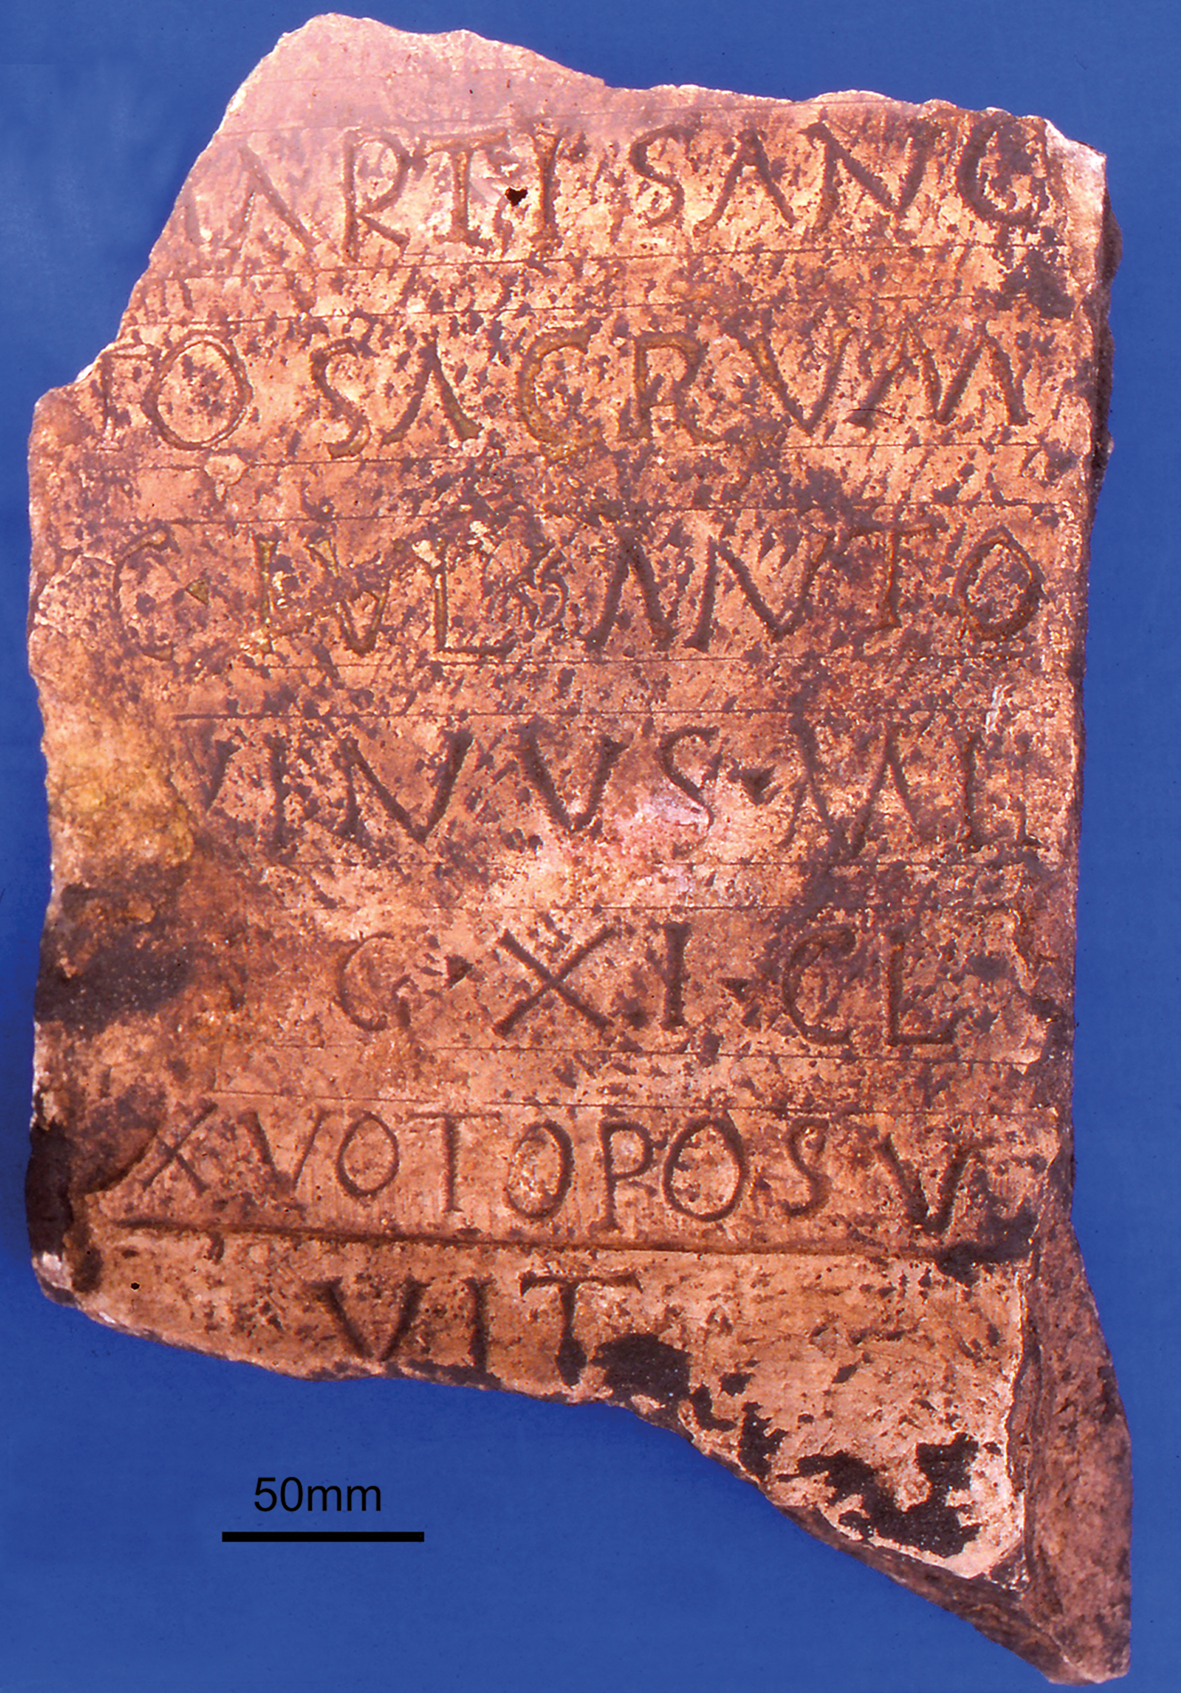 ARTI SANC
TO SACRVM
C·IVL·ANTO
NINVS·MIL
G·XI·CL
X VOTO POSV
VIT
50mm